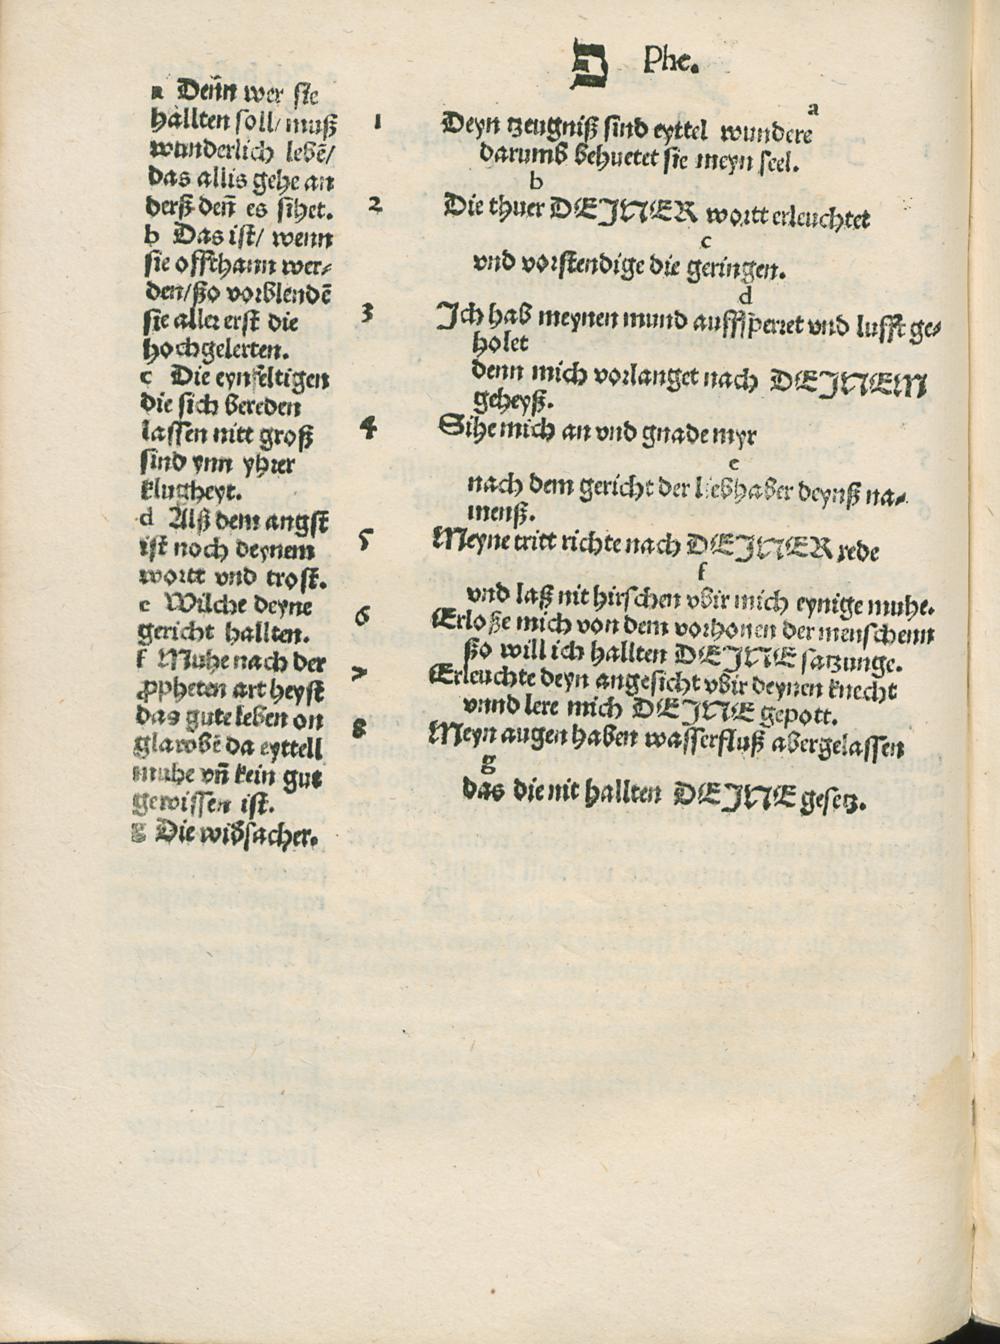 פ Phe.
a Deñn wer sie
hallten soll/ muß
wunderlich lebē/
das allis gehe an
derß deñ es sihet.
b Das ist/ wenn
sie offthann wer⸗
den/ ßo vorblendē
sie aller erst die
hochgelerten.
c Die eynfeltigen
die sich bereden
lassen nitt groß
sind ynn yhrer
klugheyt.
d Alß dem angst
ist noch deynem
wortt vnd trost.
e Wilche deyne
gericht hallten.
f Muhe nach der
ꝓpheten art heyst
das gute leben on
glawbē da eyttell
muhe vñ kein gut
gewissen ist.
g Die widsacher.
a
1 Deyn tzeugniß sind eyttel wundere
darumb behuetet sie meyn seel.
b
2 Die thuer DEJNER wortt erleuchtet
c
vnd vorstendige die geringen.
d
3 Jch hab meynen mund auffsperret vnd lufft ge⸗
holet
denn mich vorlanget nach DEJNEM
geheyß.
4 Sihe mich an vnd gnade myr
e
nach dem gericht der liebhaber deynß na⸗
menß.
5 Meyne tritt richte nach DEJNER rede
f
vnd laß nit hirschen vbir mich eynige muhe.
6 Erloße mich von dem vorhonen der menschenn
ßo will ich hallten DEJNE satzunge.
7 Erleuchte deyn angesicht vbir deynen knecht
vnnd lere mich DEJNE gepott.
8 Meyn augen haben wasserfluß abergelassen
g
das die nit hallten DEJNE gesetz.